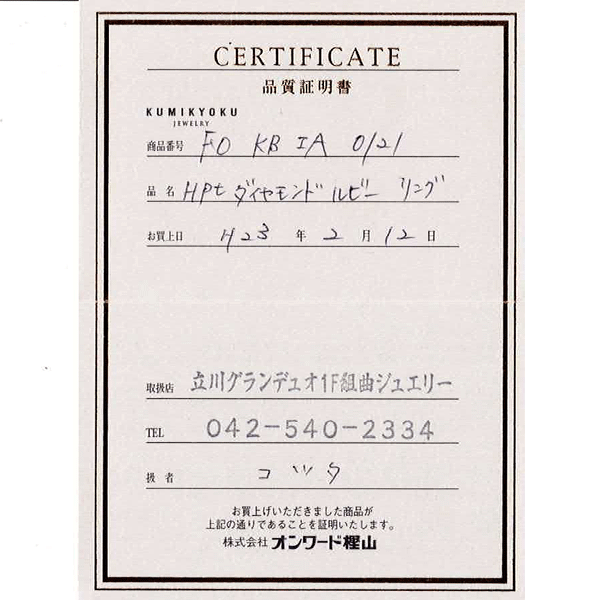 CERTIFICATE
品質証明書
KUMIKYOKU
JEWELRY
商品番号 FO KB IA 0121
品名 HPt ダイヤモンド ルビー リング
お買上日 H23 年 2 月 12 日
取扱店 立川グランデュオ1F組曲ジュエリー
TEL 042-540-2334
扱者 コツタ
お買上げいただきました商品が
上記の通りであることを証明いたします。
株式会社 オンワード樫山